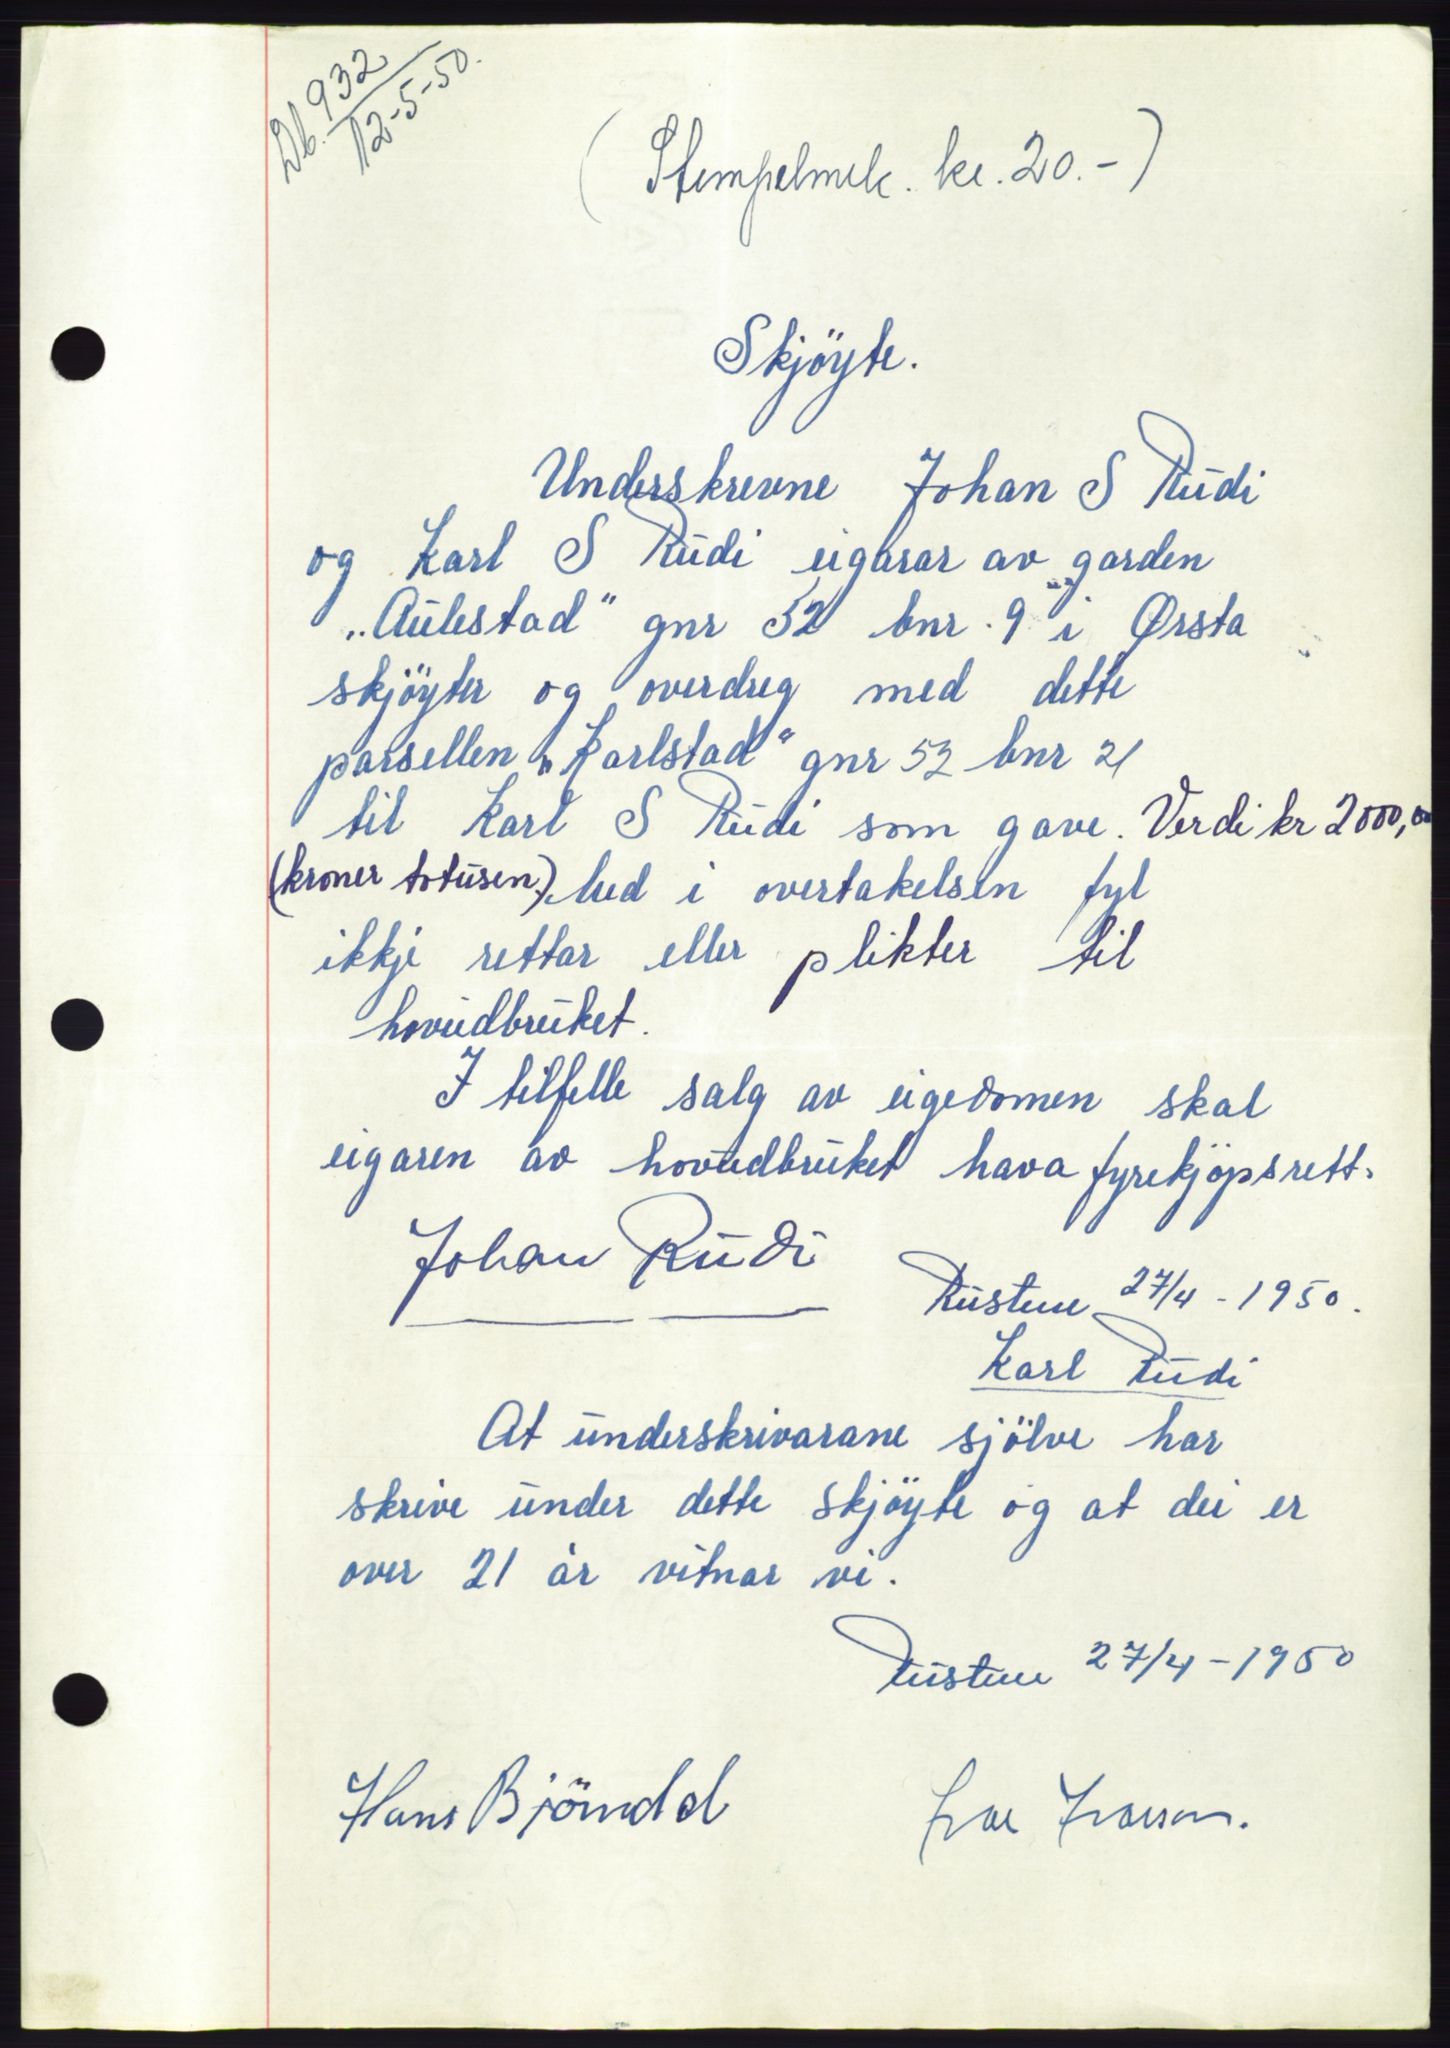 Db. 932
12-5-50.
(Stempelmrk. kr. 20.-)
Skjöyte.
Underskrevne Johan S Rudi
og Karl S Rudi eigarar av garden
„Aulestad" gnr 52 bnr. 9 i Ørsta
skjöyter og overdreg med dette
parsellen „Karlstad" gnr 52 bnr 21
til Karl S Rudi som gave. Verdi kr 2000,00
(kroner totusen.) Med i overtakelsen fyl
ikkje rettar eller plikter til
hovudbruket.
I tilfelle salg av eigedomen skal
eigaren av hovudbruket hava fyrekjöpsrett.
Johan Rudi
27/4 - 1950.
Karl Rudi
At underskrivarane sjölve har
skrive under dette skjöyte og at dei er
over 21 år vitnar vi.
27/4 - 1950
Hans Bjöndal
Ivar Ivarson.